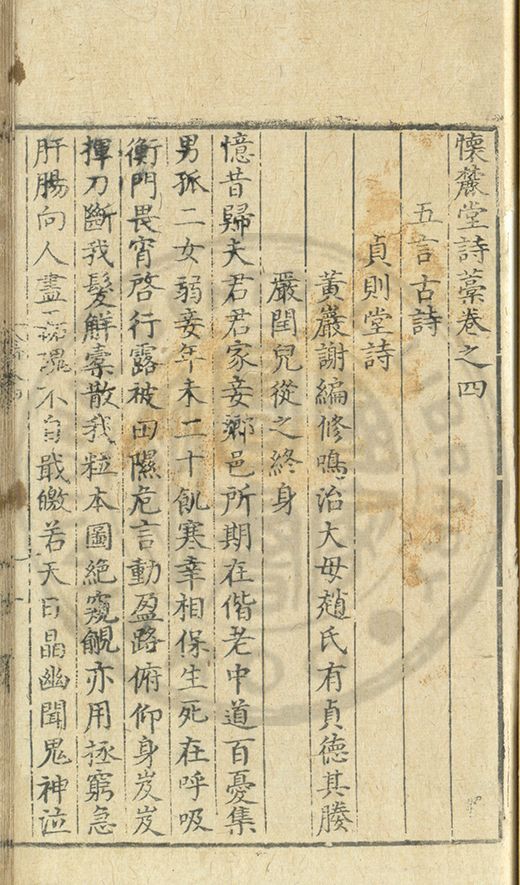 懷麓堂詩藁卷之四
五言古詩
貞則堂詩
黃巖謝編修鳴治大母趙氏有貞德其媵
嚴閏兒從之終身
憶昔歸夫君君家妾鄉邑所期在偕老中道百憂集
男孤二女弱妾年未二十飢寒幸相保生死在呼吸
衡門畏宵啓行露被田隰危言動盈路俯仰身岌岌
揮刀斷我髮解橐散我粒本圖絕窺覦亦用拯窮急
肝腸向人盡 不自戢皦若天日晶幽聞鬼神泣